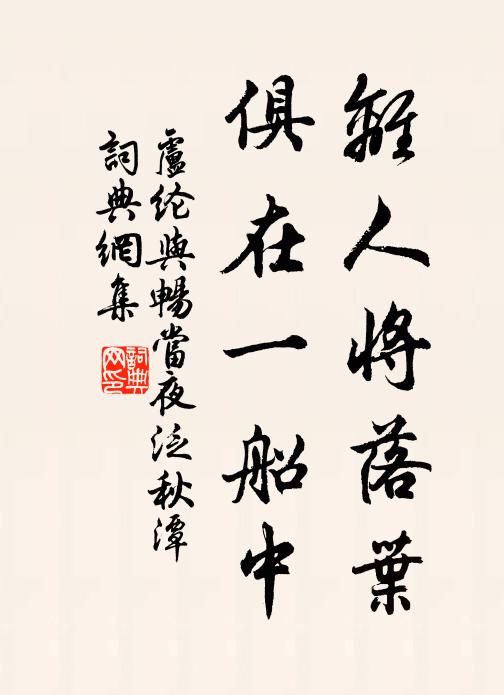 離人將落葉
俱在一船中
盧纶與暢當夜泛秋潭
詞典網集
詞典网印